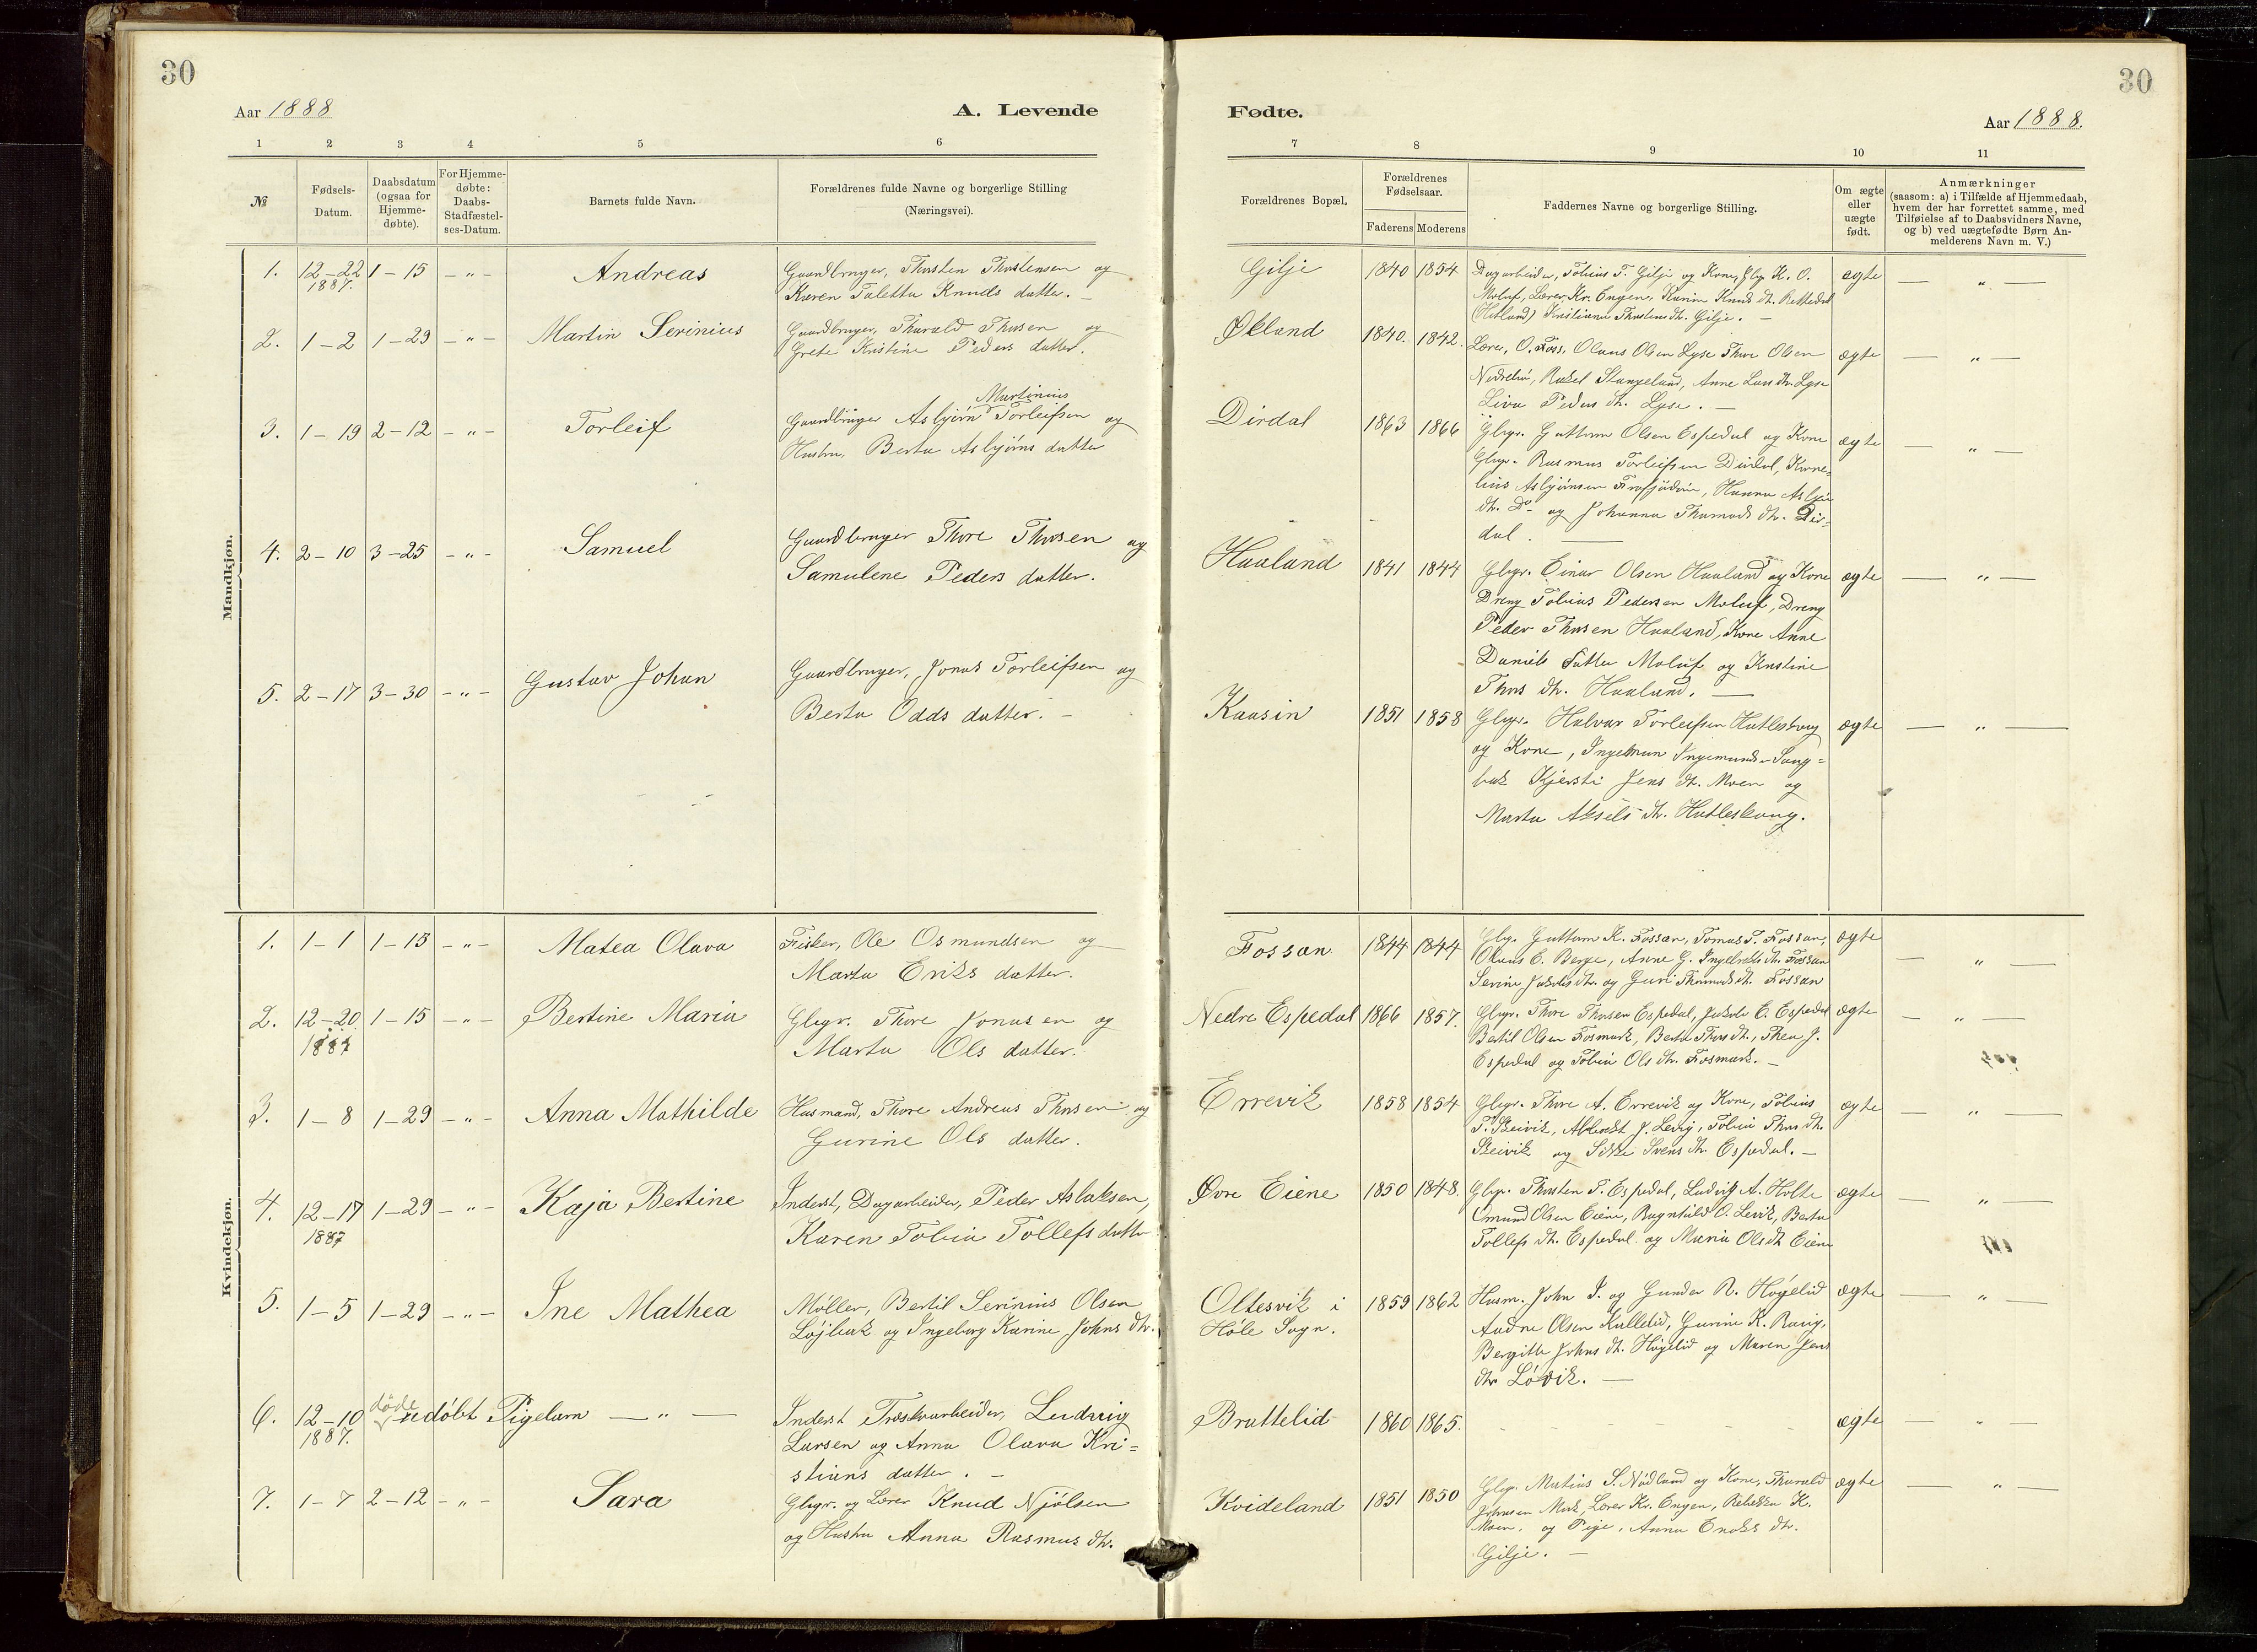 30
Aar 1888
A. Levende
1 2 3 4 5 6
№
Fødsels-Datum.
Daabsdatum (ogsaa for Hjemme-døbte).
For Hjemme-døbte: Daabs-Stadfæstel-ses-Datum.
Barnets fulde Navn.
Forældrenes fulde Navne og borgerlige Stilling
(Næringsvei).
Mandkjøn.
1. 12-22 1887. 1-15 -"- Andreas
Gaardbruger, Thorsten Thorstensen og
Karen Taletta Knuds datter. -
2. 1-2 1-29 -"- Martin Serinius
Gaardbruger, Tharald Thorsen og
Grete Kristine Peders datter.
3. 1-19 2-12 -"- Torleif
Martinius
Gaardbruger Asbjørn Torleifsen og
Hustru, Berta Asbjørns datter
4. 2-10 3-25 -"- Samuel
Gaardbruger Thore Thorsen og
Samulene Peders datter.
5. 2-17 3-30 -"- Gustav Johan
Gaardbruger, Jonas Torleifsen og
Berta Odds datter. -
Kvindekjøn.
1. 1-1 1-15 -"- Matea Olava
Fisker, Ole Osmundsen og
Marta Eriks datter.
2. 12-20 1887 1-15 -"- Bertine Maria
Gbgr. Thore Jonasen og
Marta Ols datter.
3. 1-8 1-29 -"- Anna Mathilde
Husmand, Thore Andreas Thorsen og
Gurine Ols datter.
4. 12-17 1887 1-29 -"- Kaja Bertine
Inderst, Dagarbeider, Peder Aslaksen,
Karen Tobia Tollefs datter
5. 1-5 1-29 -"- Ine Mathea
Møller, Bertil Serinius Olsen
Løjbak og Ingeborg Karine Johns dtr.
6. 12-10 1887. døde udøbt Pigebarn -"-
Inderst Træskoarbeider, Ludvig
Larsen og Anna Olava Kri=
stians datter. -
7. 1-7 2-12 -"- Sara
Gbgr. og Lærer Knud Njølsen
og Hustru Anna Rasmus dtr.
30
Fødte.
Aar 1888.
7 8 9 10 11
Forældrenes Bopæl.
Forældrenes Fødselsaar.
Faderens Moderens
Faddernes Navne og borgerlige Stilling.
Om ægte eller uægte født.
Anmærkninger
(saasom: a) i Tilfælde af Hjemmedaab,
hvem der har forrettet samme, med
Tilføielse af to Daabsvidners Navne,
og b) ved uægtefødte Børn An-
melderens Navn m. V.)
Gilje 1840 1854
Dagarbeider, Tobias T. Gilje og Kone, Gbgr K. O.
Moluf, Lærer Kr. Engen, Karine Knuds dt. Rettedal
(Hetland) Kristiane Thorstens dtr. Gilje. -
ægte - " -
Økland 1840. 1842.
Lærer, O. Foss, Olaus Olsen Lyse Thore Olsen
Nedrebø, Rakel Stangeland, Anne Lars dtr. Lyse
Liva Peders dt. Lyse. -
ægte - " -
Dirdal 1863 1866
Gbgr. Guttorm Olsen Espedal og Kone
Gbgr. Rasmus Torleifsen Dirdal, Korne=
lius Asbjørnsen Frafjord, Hanna Asbjørns
dt. Do og Johanna Thomads dt. Dir=
dal.
ægte - " -
Haaland 1841 1844
Gbgr. Einar Olsen Haaland og Kone
Dreng Tobias Pedersen Moluf, Dreng
Peder Thorsen Haaland, Kone Anne
Daniels datter Moluf og Kristine
Thors dtr. Haaland. -
ægte - " -
Kaasin 1851 1858
Gbgr. Halvar Torleifsen Hatleskog
og Kone, Ingelmun Ingemunds.
Kjersti Jens dt. Moen og
Marta Aksels dtr. Hatleskaug.
ægte - " -
Fossan 1844 1844
Gbgr. Guttorm K. Fossan, Tomas T. Fossan,
Olaus E. Berge, Anne G. Ingebrets dt. Fossan
Serine Jakobs dtr. og Guri Thomads dt. Fossan
ægte - " -
Nedre Espedal 1866 1857.
Gbgr. Thore Thorsen Espedal, Jakob E. Espedal
Bertil Olsen Fosmark, Berta Thors dt., Thea J.
Espedal og Tobia Ols dtr. Fosmark. -
ægte - " -
Errevik 1858 1854
Gbgr. Thore A. Errevik og Kone, Tobias
T. Skeivik, Albrekt J. Levig, Tobia Thors dt.
Skeivik og Sikke Svens dtr. Espedal. -
ægte - " -
Øvre Eiene 1850 1848.
Gbgr. Thorsten T. Espedal, Ludvig A. Holte
Omund Olsen Eiene, Ragnhild O. Levik, Berta
Tollefs dt. Espedal og Maria Ols dt Eiene
ægte - " -
Oltesvik i Høle Sogn. 1859 1862
Husm. John I. og Gunder R. Høgelid
Audne Olsen Kullelid, Gurine K. Ravig,
Bergitte Johns dt. Høgelid og Maren Jens
dtr Løvik. -
ægte - " -
Brattelid 1860 1865. ægte - " -
Kvideland 1851 1850
Gbgr. Matias S. Nødland og Kone, Tharald
Johnsen Mæle, Lærer Kr. Engen, Rebekka K.
Moen, og Pige, Anna Enoks dtr.
Gilje. -
ægte - " -